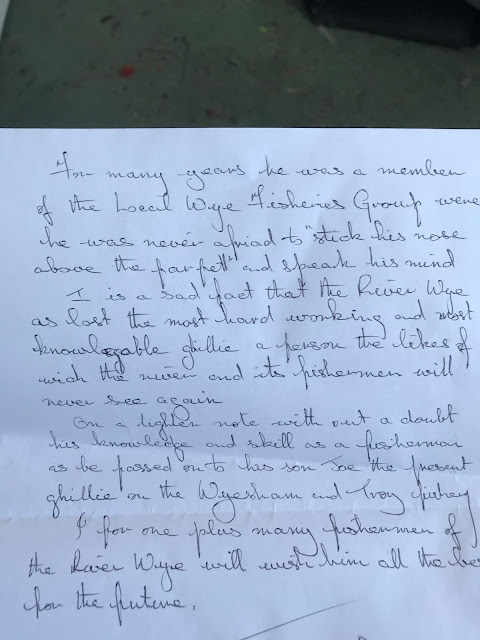 For many years he was a member
of the Local Wye Fisheries Group were
he was never afriad to "stick his nose
above the parpett" and speak his mind
I is a sad fact that the River Wye
as lost the most hard working and most
knowlegable ghillie a person the likes of
wich the river and its fishermen will
never see again
On a lighter note with out a doubt
his knowledge and skill as a fisherman
as be passed onto his son Joe the present
ghillie on the Wyesham and Troy fishery
I for one plus many fishermen of
the River Wye will wish him all the bes
for the future.